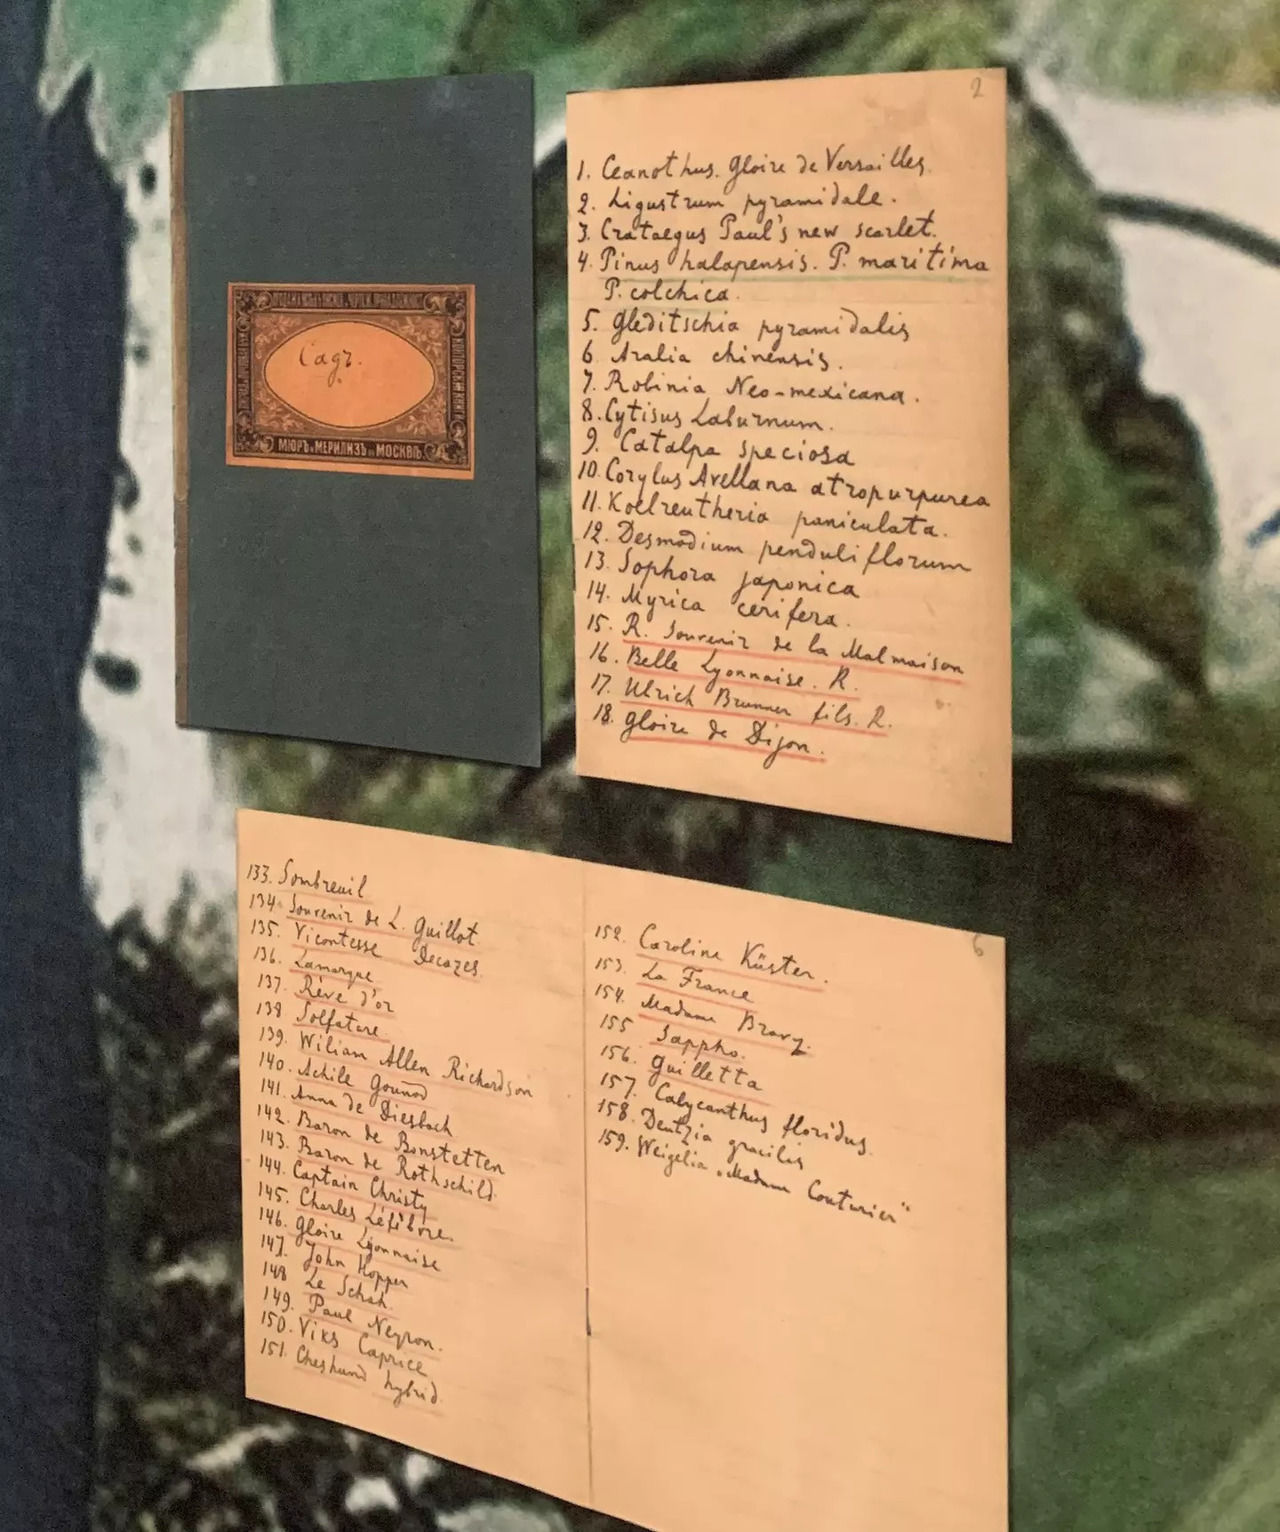 Садъ.
МЮРЪ и МЕРИЛИЗЪ въ МОСКВѢ.
2
1. Ceanothus. Gloire de Versailles.
2. Ligustrum pyramidale.
3. Crataegus Paul's new scarlet.
4. Pinus halapensis. P. maritima
P. colchica.
5. Gleditschia pyramidalis
6. Aralia chinensis.
7. Robinia Neo-mexicana.
8. Cytisus Laburnum.
9. Catalpa speciosa
10. Corylus Avellana atropurpurea
11. Koelreutheria paniculata.
12. Desmodium penduliflorum
13. Sophora japonica
14. Myrica cerifera.
15. R. Souvenir de la Malmaison
16. Belle Lyonnaise. R.
17. Ulrich Brunner fils. R.
18. Gloire de Dijon.
133. Sombreuil
134. Souvenir de L. Guillot
135. Vicontesse Decazes
136. Lamarque
137. Rève d'or
138 Solfatare.
139. Wiliam Allen Richardson
140. Achile Gounod
141. Anna de Diesbach
142. Baron de Bonstetten
143. Baron de Rothschild
144. Captain Christy
145. Charles Léfèbvre.
146. Gloire Lyonnaise
147. John Hopper
148 Le Schah.
149. Paul Neyron.
150. Viks Caprice
151. Cheshund hybrid
6
152. Caroline Küster.
153. La France
154. Madame Bravy.
155 Sappho.
156. Guilletta
157. Calycanthus floridus.
158. Deutzia gracilis
159. Weigelia „Madame Couturier"